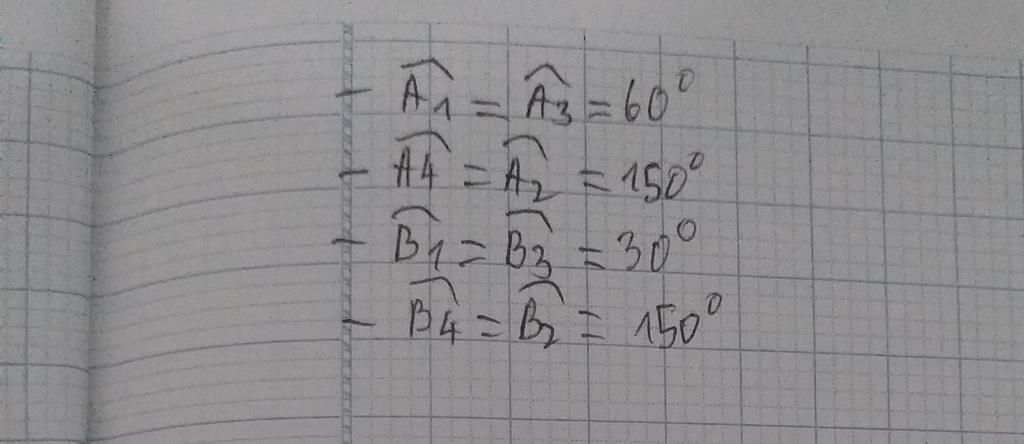 - Â1 = Â3 = 60°
- Â4 = Â2 = 150°
- B̂1 = B̂3 = 30°
- B̂4 = B̂2 = 150°